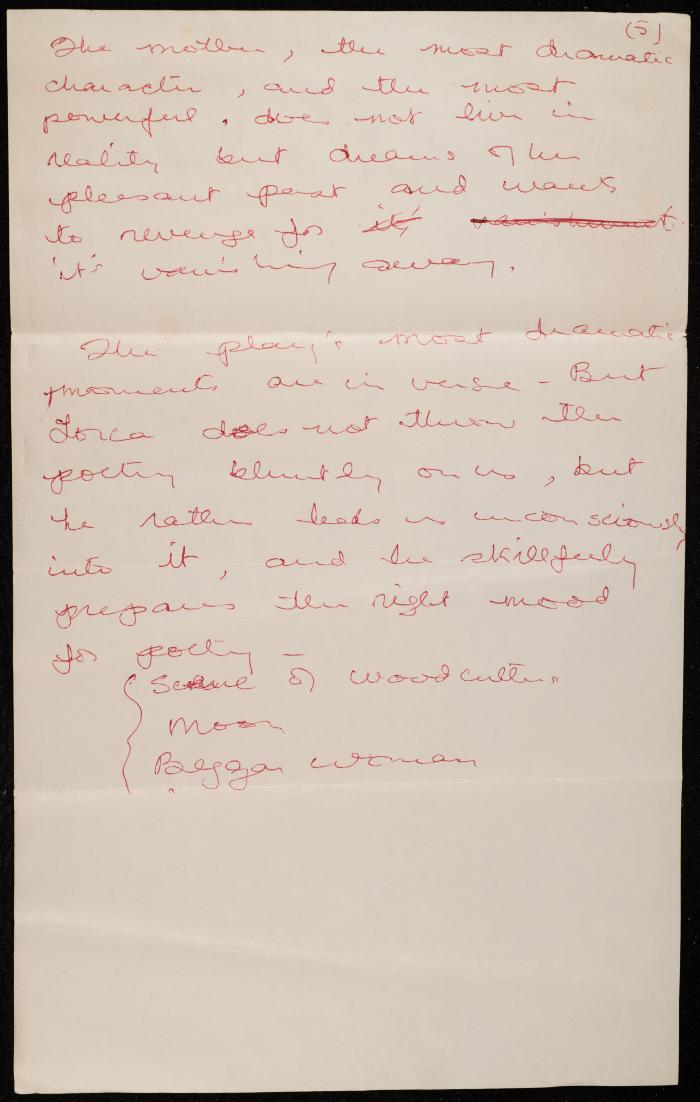 (5)
The mother, the most dramatic
character, and the most
powerful, does not live in
reality but dreams of her
pleasant past and wants
to revenge for it,
it's vanishing away.
The play's most dramatic
moments are in verse - But
Lorca does not throw the
poetry bluntly on us, but
he rather leads us unconsciously
into it, and he skillfully
prepares the right mood
for poetry -
Scene of woodcutters
Moon
Beggar woman